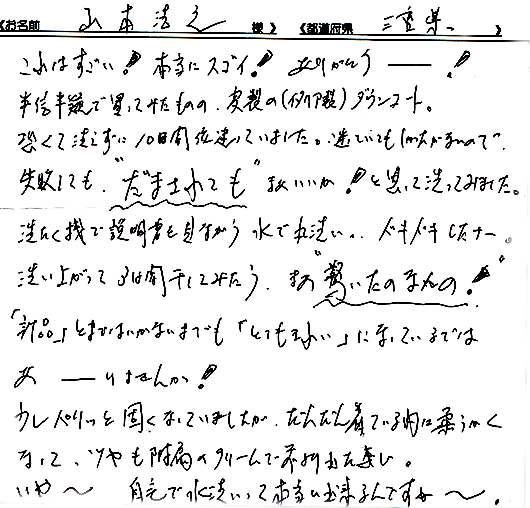 《お名前 山本浩之 様》《都道府県 三重県 》
これはすごい!本当にスゴイ!ありがとう──!
半信半疑で買ってみたものの、皮製の(イタリア製)ダウンコート。
恐くて洗えずに10日間位迷っていました。迷っていてもしかたがないので、
失敗しても、"だまされても"まあいいか!と思って洗ってみました。
洗たく機で説明書を見ながら水で丸洗い、ドキドキしたナー。
洗い上がって3日間干してみたら、まあ"驚いたのなんの!"
「新品」とまではいかないまでも「とてもきれい」になっているでは
あ──りませんか!
少しパリッと固くなっていましたが、だんだん着ている内に柔らかく
なって、ツヤも附属のクリームで
いや〜 自宅で水洗いって本当に出来るんですネ〜。